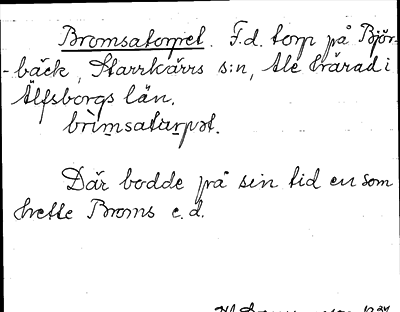 Bromsatorpet. F.d. torp på Björ-
-bäck, Starrkärrs s:n, Ale härad i
Älfsborgs län.
brìmsatarpət.
Där bodde på sin tid en som
hette Broms e.d.